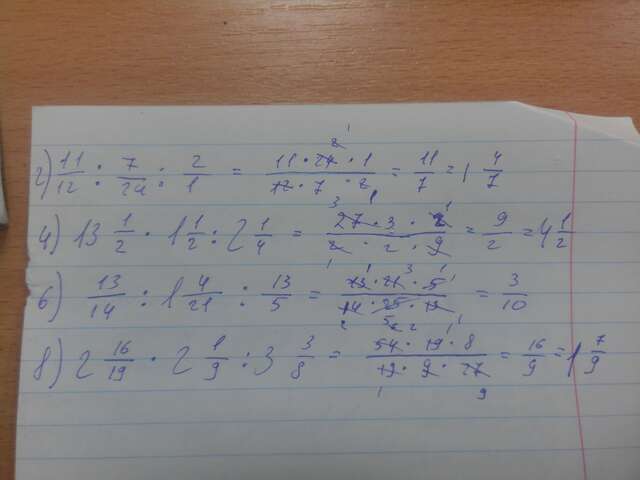 2) 11/12 : 7/24 : 2/1 = 11·24·1/12·7·2 = 11/7 = 1 4/7
4) 13 1/2 · 1 1/2 : 2 1/4 = 27·3·4/2·2·9 = 9/2 = 4 1/2
6) 13/14 : 1 4/21 : 13/5 = 13·21·5/14·25·13 = 3/10
8) 2 16/19 · 2 1/9 : 3 3/8 = 54·19·8/19·9·27 = 16/9 = 1 7/9